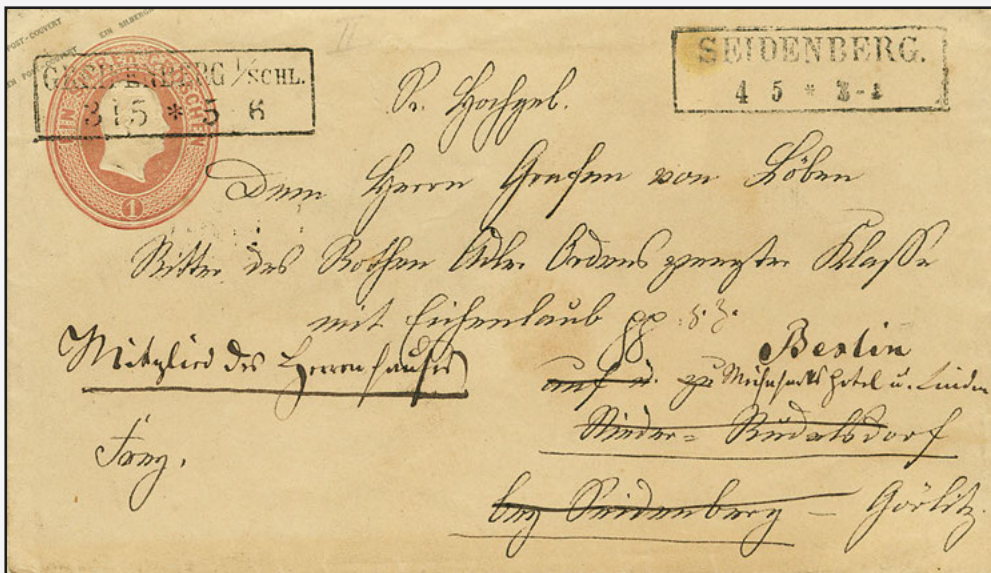 POST-COUVERT EIN SILBERGR
EIN POST-COUVERT
EIN SILBER GROSCHEN
1
GREIFFENBERG I/SCHL.
31 5 * 5 6
SEIDENBERG.
4 5 *
II
Sr. Hochgeb.
Dem Herrn Grafen von Löben
Ritter des Rothen Adler Ordens zweyter Klasse
mit Eichenlaub pp
Mitglied des Herrenhauses
Berlin
auf u. zu Meinhardts Hotel u. Linden
Nieder-Rudelsdorf
Frey.
bey Seidenberg – Görlitz.